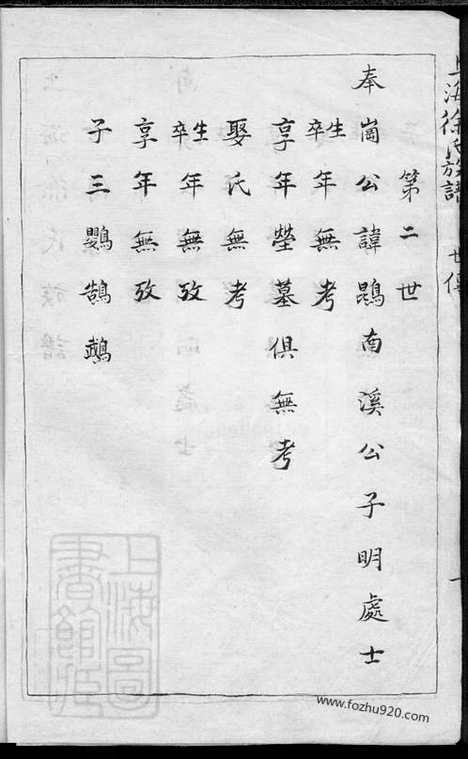 上海徐氏族譜 世傳
第二世
奉崗公諱鵾南溪公子明處士
生卒年無考
享年塋墓俱無考
娶氏無考
生卒年無攷
享年無攷
子三鸚鵠鵡
上海圖書館藏
www.fozhu920.com